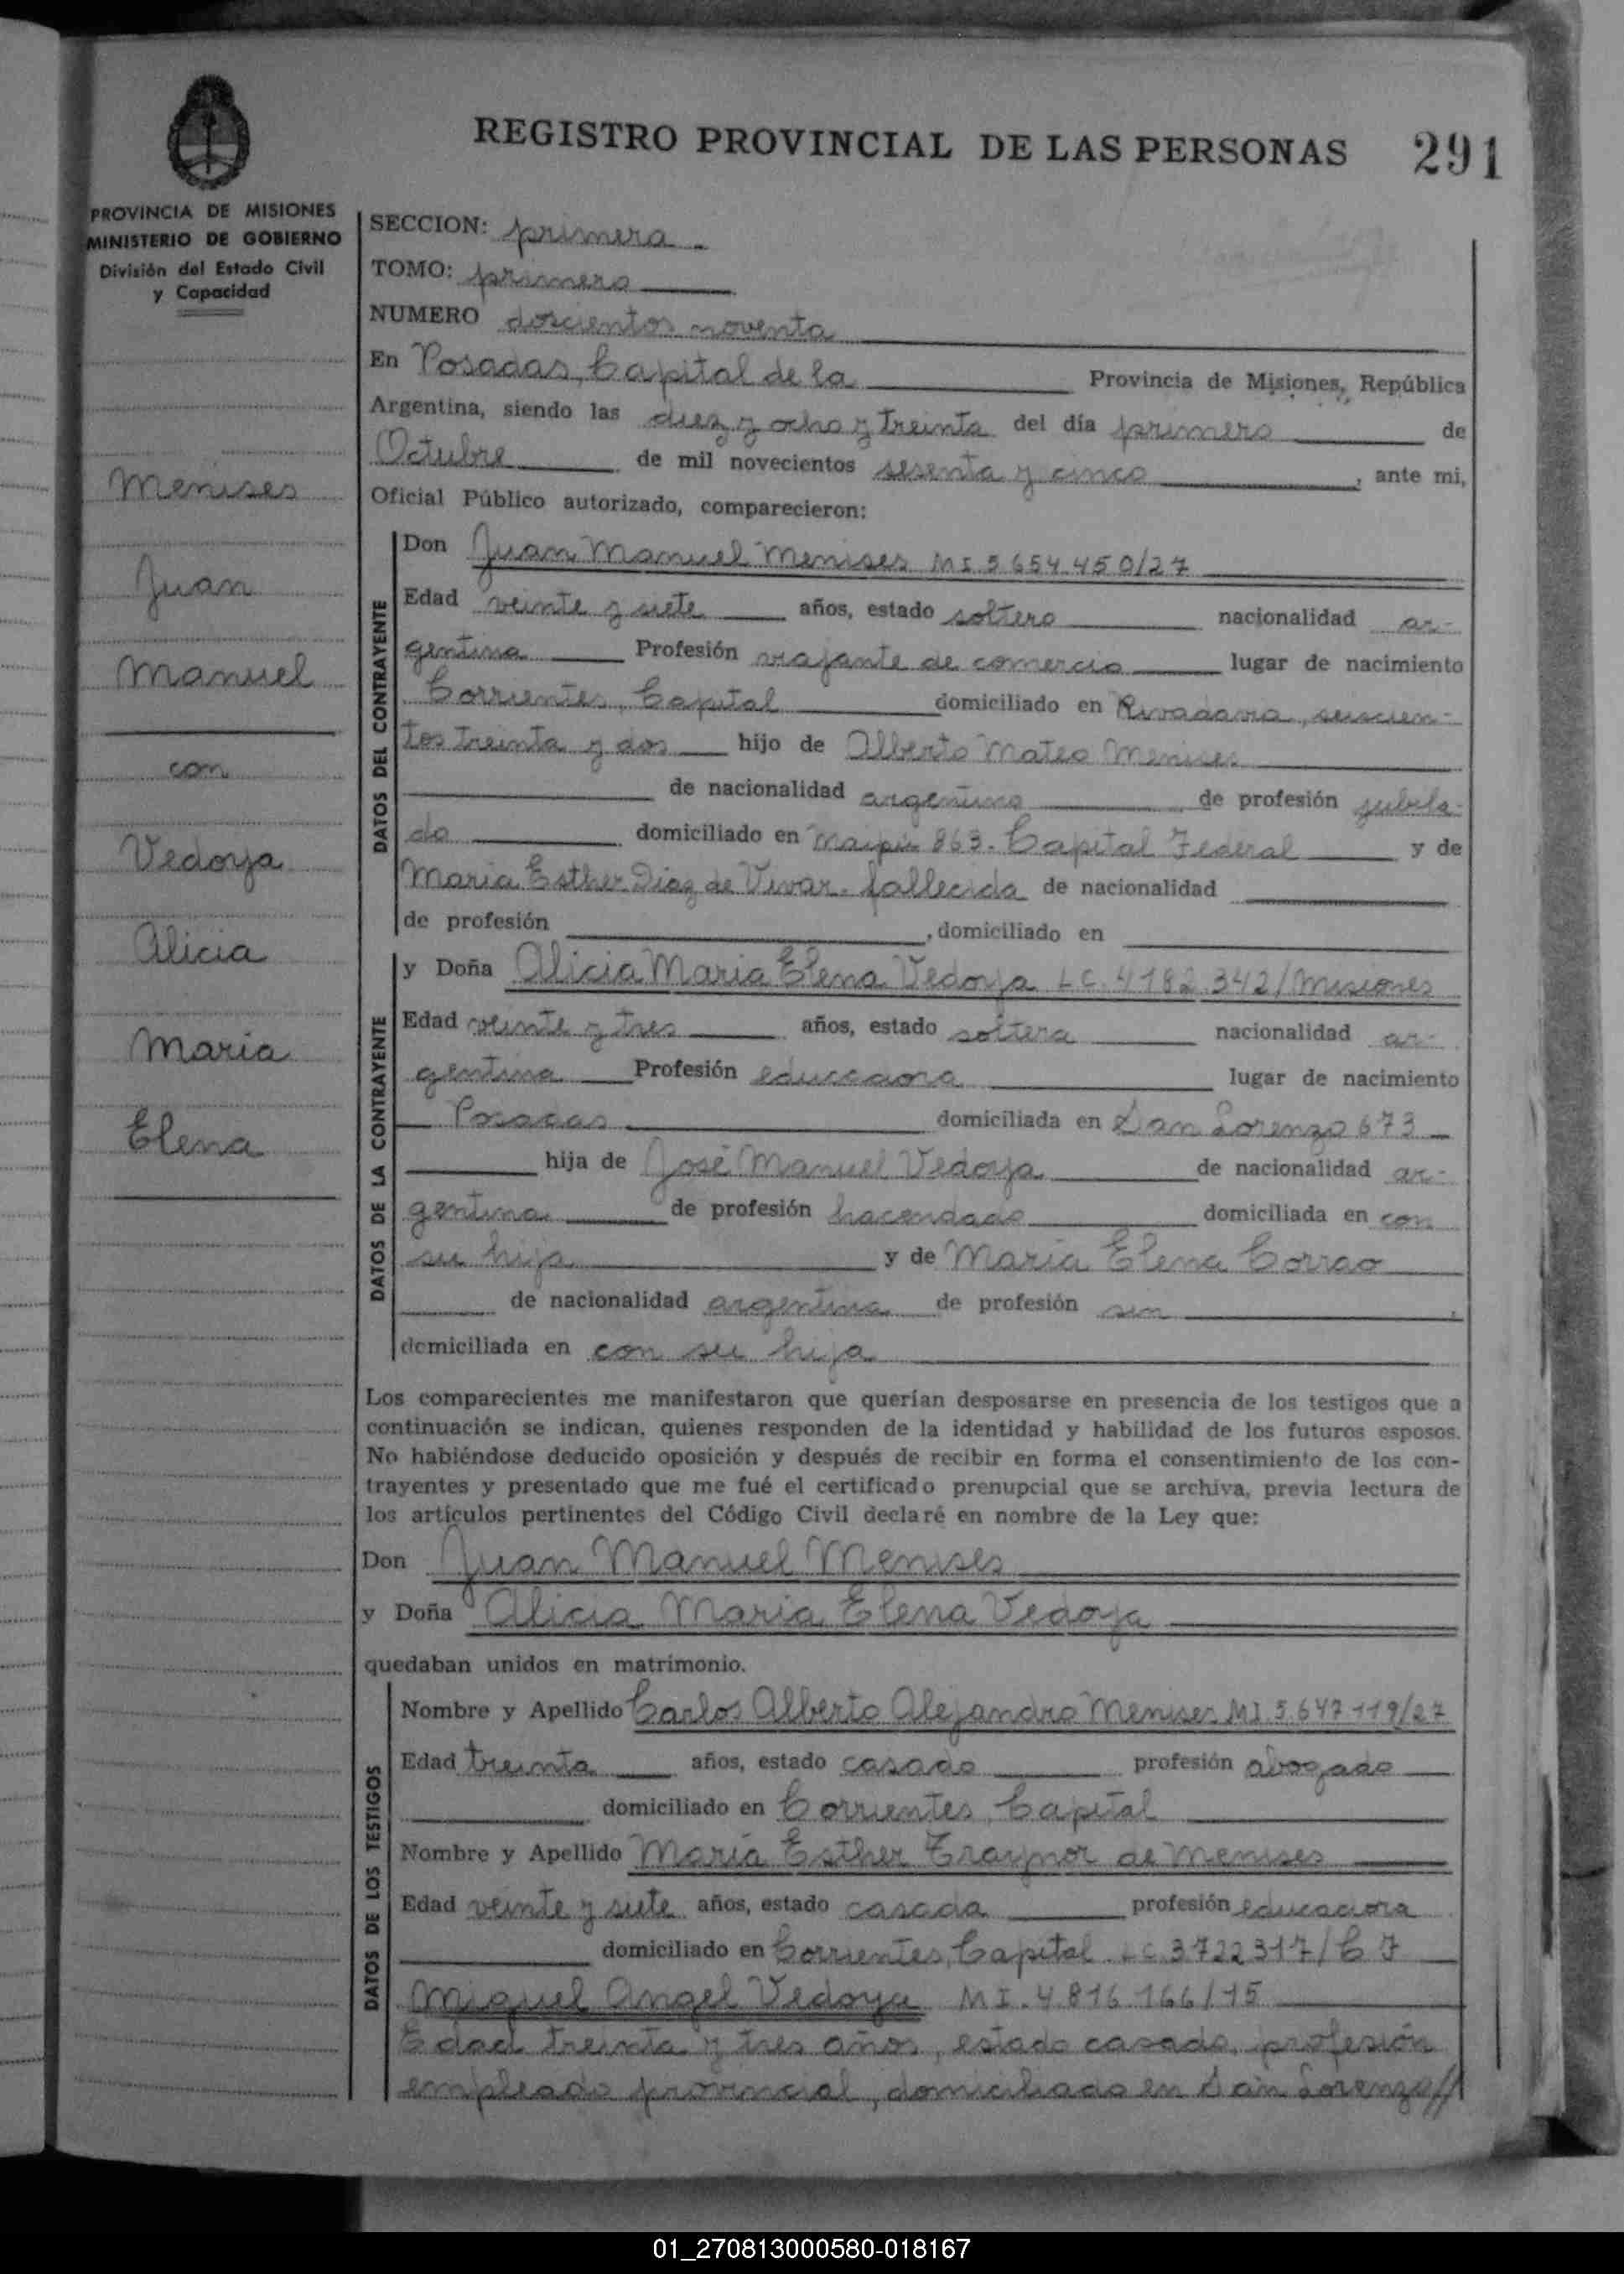 REGISTRO PROVINCIAL DE LAS PERSONAS 291
PROVINCIA DE MISIONES
MINISTERIO DE GOBIERNO
División del Estado Civil
y Capacidad
Menises
Juan
Manuel
con
Vedoya
Alicia
Maria
Elena
SECCION: primera
TOMO: primero
NUMERO doscientos noventa
En Posadas, Capital de la Provincia de Misiones, República
Argentina, siendo las diez y ocho y treinta del día primero de
Octubre de mil novecientos sesenta y cinco, ante mi,
Oficial Público autorizado, comparecieron:
DATOS DEL CONTRAYENTE
Don Juan Manuel Menises MI 5654450/27
Edad veinte y siete años, estado soltero nacionalidad ar-
gentina Profesión viajante de comercio lugar de nacimiento
Corrientes, Capital domiciliado en Rivadavia, seiscien-
tos treinta y dos hijo de Alberto Mateo Menises
de nacionalidad argentino de profesión jubila-
do domiciliado en Maipú 863. Capital Federal y de
Maria Esther Diaz de Vivar. fallecida de nacionalidad
de profesión , domiciliado en
DATOS DE LA CONTRAYENTE
y Doña Alicia Maria Elena Vedoya LC. 4182.342/Misiones
Edad veinte y tres años, estado soltera nacionalidad ar-
gentina Profesión educadora lugar de nacimiento
Posadas domiciliada en San Lorenzo 673
hija de José Manuel Vedoya de nacionalidad ar-
gentina de profesión hacendado domiciliada en con
su hija y de Maria Elena Corrao
de nacionalidad argentina de profesión sin,
domiciliada en con su hija
Los comparecientes me manifestaron que querían desposarse en presencia de los testigos que a
continuación se indican, quienes responden de la identidad y habilidad de los futuros esposos.
No habiéndose deducido oposición y después de recibir en forma el consentimiento de los con-
trayentes y presentado que me fué el certificado prenupcial que se archiva, previa lectura de
los artículos pertinentes del Código Civil declaré en nombre de la Ley que:
Don Juan Manuel Menises
y Doña Alicia Maria Elena Vedoya
quedaban unidos en matrimonio.
DATOS DE LOS TESTIGOS
Nombre y Apellido Carlos Alberto Alejandro Menises MI 5.647.119/27
Edad treinta años, estado casado profesión abogado
domiciliado en Corrientes, Capital
Nombre y Apellido María Esther Traynor de Menises
Edad veinte y siete años, estado casada profesión educadora
domiciliado en Corrientes, Capital LC 3722317/C F
Miguel Angel Vedoya MI. 4.816.166/15
Edad treinta y tres años, estado casado, profesión
empleado provincial, domiciliado en San Lorenzo//
01_270813000580-018167